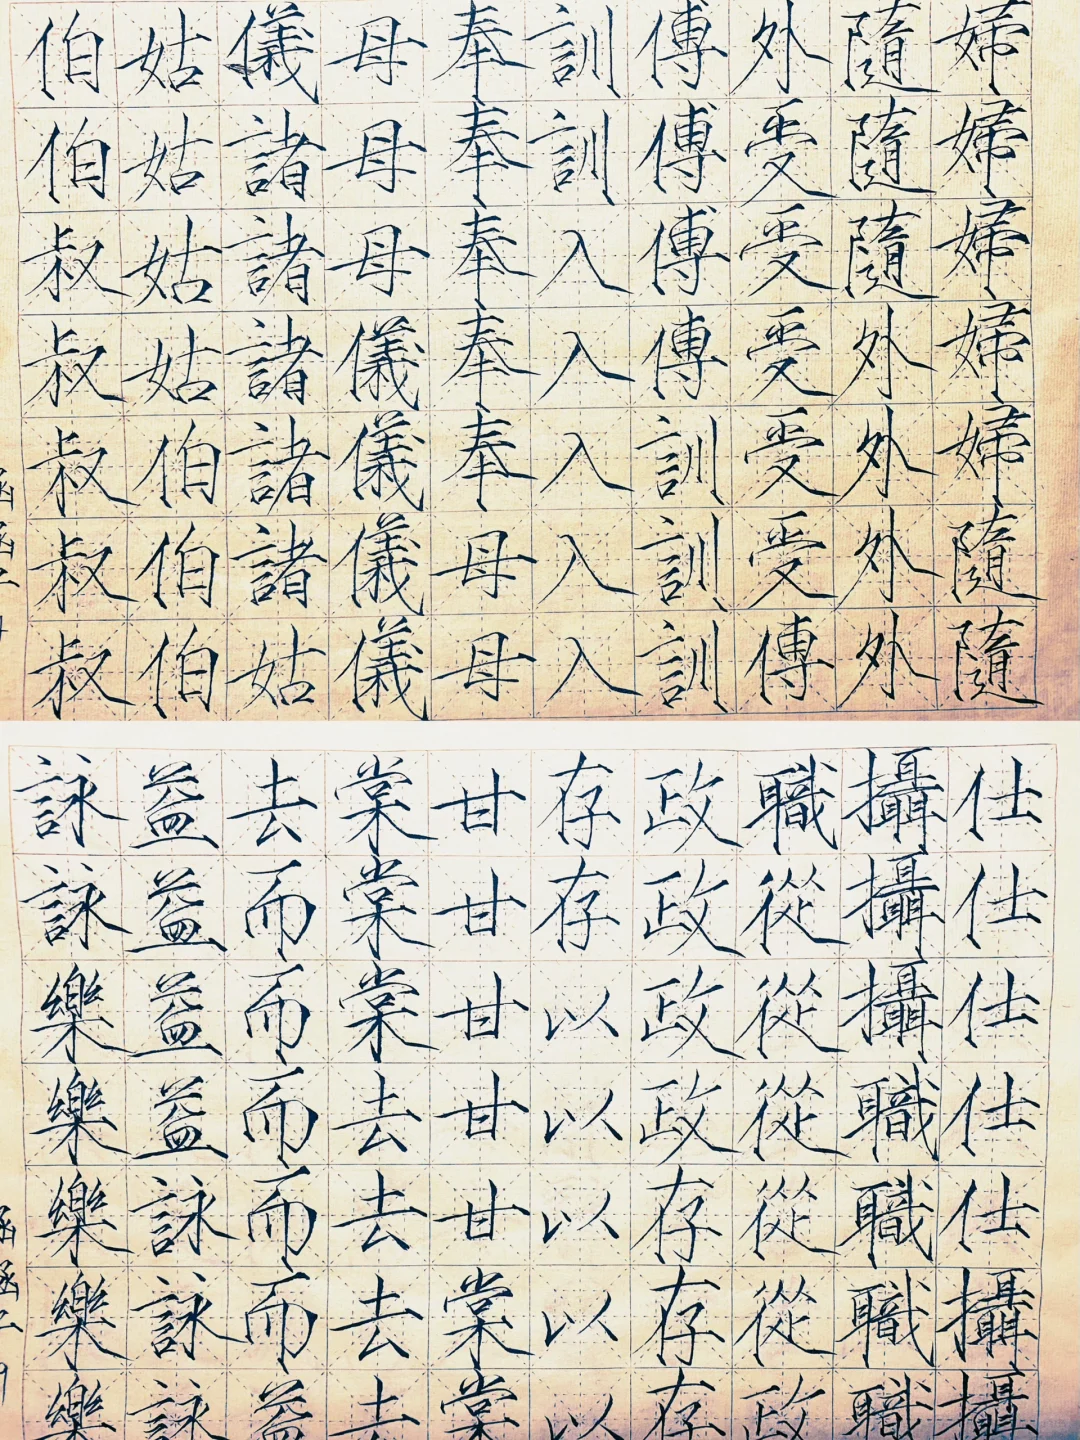 婦婦婦婦婦隨隨
隨隨隨外外外外
外受受受受受傅
傅傅傅傅訓訓訓
訓訓入入入入入
奉奉奉奉奉母母
母母母儀儀儀儀
儀諸諸諸諸諸姑
姑姑姑姑伯伯伯
伯伯叔叔叔叔叔
仕仕仕仕仕攝攝
攝攝攝職職職職
職從從從從從政
政政政政存存存
存存以以以以以
甘甘甘甘甘棠棠
棠棠棠去去去去
去而而而而而益
益益益益詠詠詠
詠詠樂樂樂樂樂